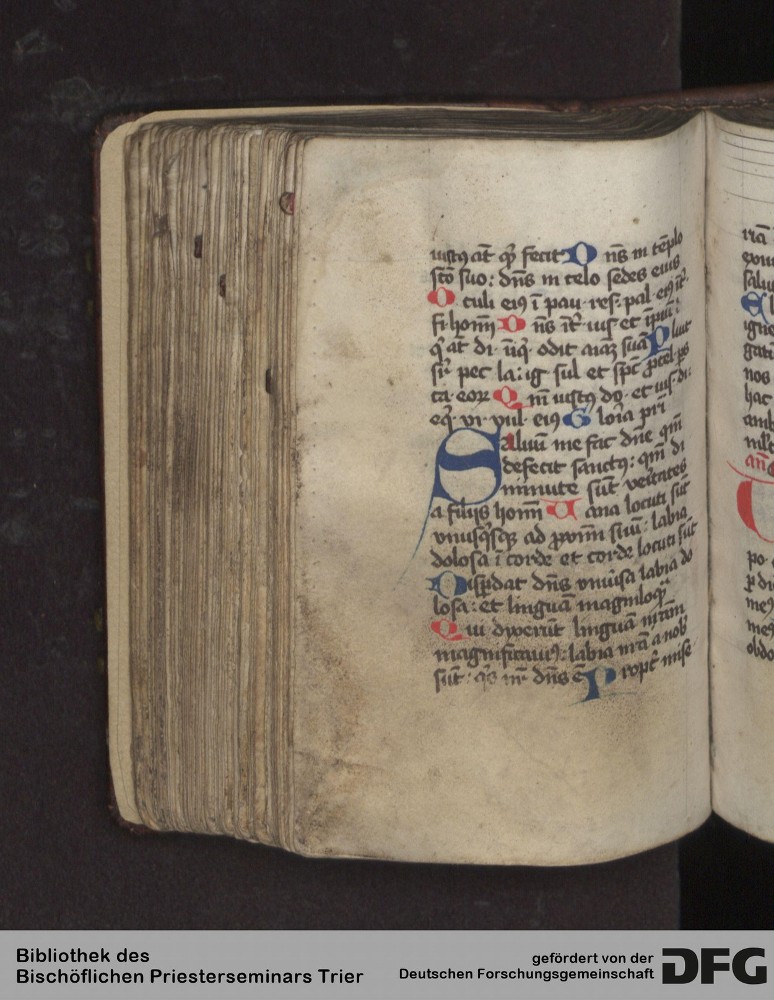 iustꝰ aūt qͥd fecit Dn̄s in tēplo
sc̄o suo: dn̄s in celo sedes eius
Oculi eiꝰ ī pau· res· pal· eiꝰ īt͛·
fi· hoīm Dn̄s īt͛· ius et īpiū:
qͥ aūt di· īiqͥ· odit aīaꝫ suā Pluit
sr̄ pec la: ig sul et sp̄c ꝓcel· ps
ca· eoꝝ Qm̄ iustꝰ dꝰ· et ius· di:
eqͥ· vi· vul· eiꝰ Gloria pr̄i
Saluū me fac dn̄e qm̄
defecit sanctꝰ: qm̄ di
minute sūt veritates
a filijs hoīm Uana locuti sūt
vnusqͥsqꝫ ad ꝓximū suū: labia
dolosa ī corde et corde locuti sūt
Disꝑdat dn̄s vniūsa labia do
losa: et linguā magniloqͣ
Qui dixerūt linguā nr̄am
magnificabimꝰ: labia nr̄a a nob̄
sūt: qͥs nr̄ dn̄s ē Propt͛ mise
riā
saluū
igne
nos
hac
po
ꝑ di
meꝰ
meꝰ
Bibliothek des
Bischöflichen Priesterseminars Trier
gefördert von der
Deutschen Forschungsgemeinschaft
DFG